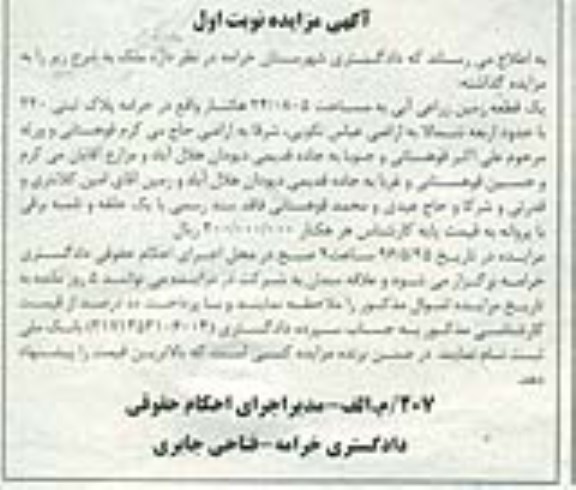 آگهی مزایده نوبت اول
به اطلاع می رساند که دادگستری شهرستان خرامه در نظر دارد ملک به شرح زیر را به
مزایده گذاشته
یک قطعه زمین زراعی آبی به مساحت هکتار واقع در خرامه پلاک ثبتی
با حدود اربعه شمالا به اراضی عباس شرقا به اراضی حاج می کرم قوهستانی و ورثه
مرحوم علی اکبر قوهستانی و جنوبا به جاده قدیمی دیودان جلال آباد و مزارع آقایان می کرم
و حسین قوهستانی و غربا به جاده قدیمی دیودان جلال آباد و زمین آقای امین کلانتری و
قدرتی و شرکا و حاج عبدی و محمد قوهستانی فاقد سند رسمی با یک حلقه و نصبه برقی
با پروانه به قیمت پایه کارشناس هر هکتار ریال
مزایده در تاریخ ساعت ۹ صبح در محل اجرای احکام حقوقی دادگستری
خرامه برگزار می شود و علاقه مندان به شرکت در مزایده می توانند ۵ روز مانده به
تاریخ مزایده اموال مذکور را ملاحظه نمایند و با پرداخت ۱۰ درصد از قیمت
کارشناسی مذکور به حساب سپرده دادگستری بانک ملی
ثبت نام نمایند. در ضمن برنده مزایده کسی است که بالاترین قیمت را پیشنهاد
دهد.
۲۰۷/م.الف-مدیر اجرای احکام حقوقی
دادگستری خرامه-فتاحی جابری